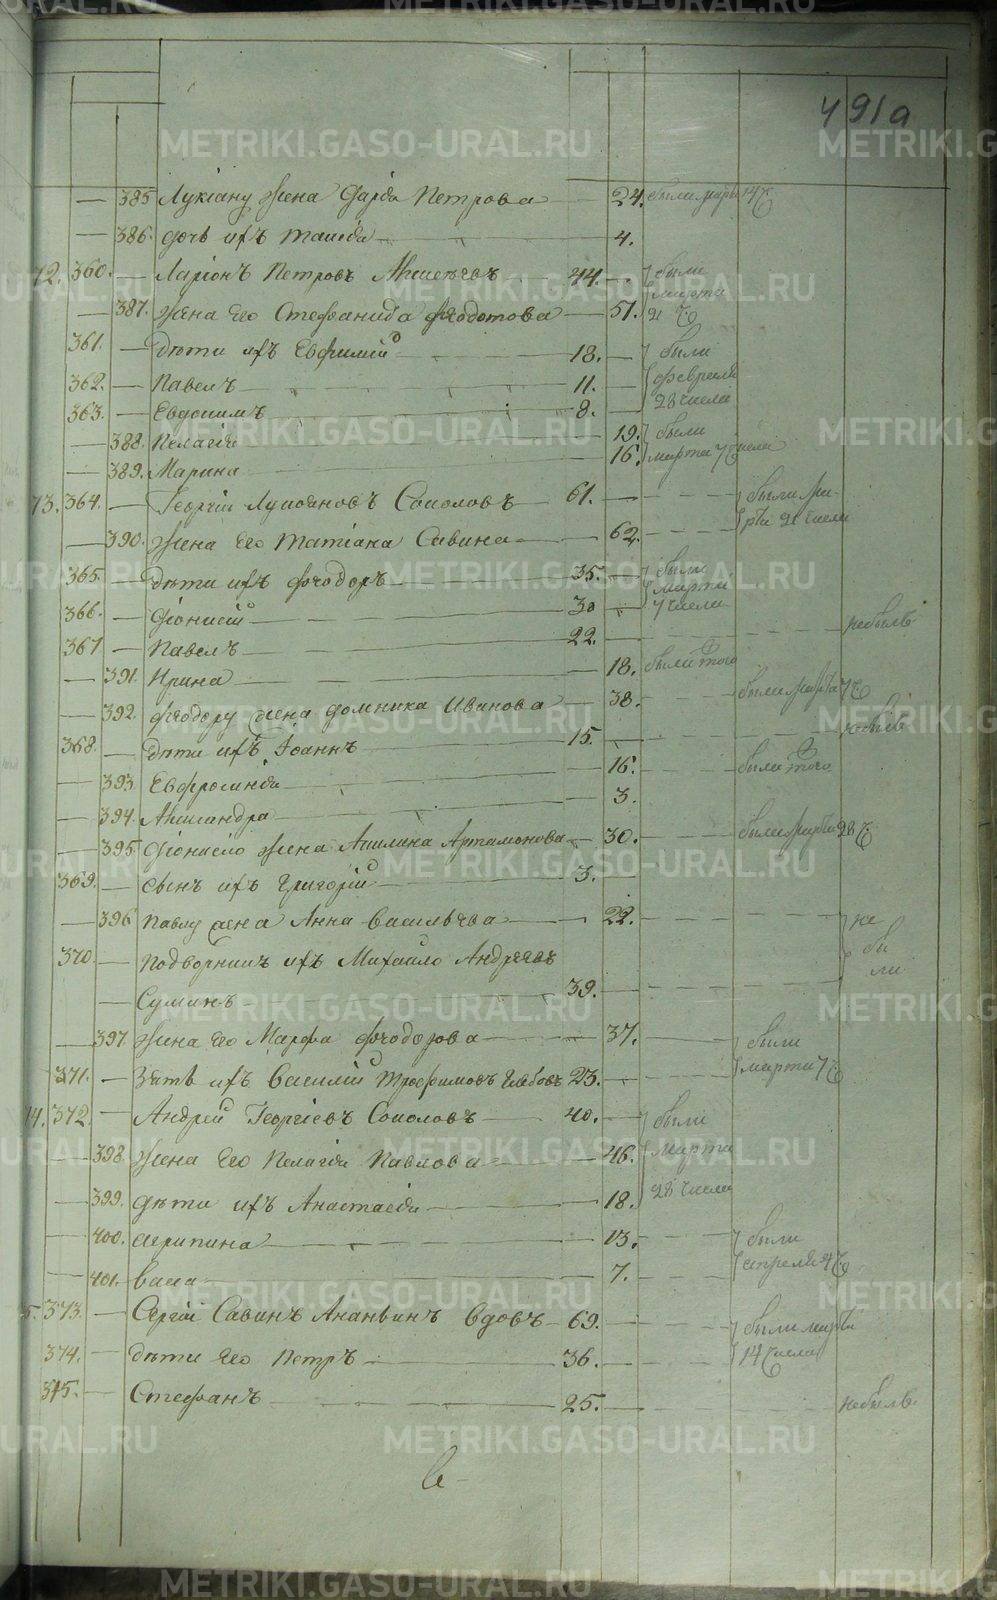 491а
385 Лукіану жена Дарiя Петрова 24. были марта 14 ч
386. дочь ихъ Таисiя 4.
72. 360. Ларіонъ Петровъ 44. были
387. жена его Стефанида Ѳеодотова 51. марта 21 ч
361. дѣти ихъ Евфимiй 18. были
362. Павелъ 11. февраля
363. Евдокимъ 8. 28 числа
388. Пелагiя 19. были
389. Марина 16. марта 7 числа
73. 364. Георгiй Соколовъ 61. были ма-
390. жена его Татiана Савина 62. рта 21 числа
365. дѣти ихъ Ѳеодоръ 35. были марта
366. Дiонисiй 30 7 числа
367 Павелъ 22. небылъ
391. Ирина 18. были того
392. Ѳеодору жена Домника Иванова 38. были марта 7 ч
368. дѣти ихъ Іоаннъ 15. небылъ
393. Евфросинiя 16. были того
394. Александра 3.
395. Дiонисiю жена Акилина Артамонова 30. были марта 28 ч
369. сынъ ихъ Григорiй 3.
396 Павлу жена Анна Васильева 22. не
370. подворникъ ихъ Михайло Андреевъ бы
Суминъ 39. ли
397 жена его Марфа Ѳеодорова 37. были
371. зять ихъ Василiй Трофимовъ Глебовъ 23. марта 7 ч
74. 372. Андрей Георгiевъ Соколовъ 40. были
398 жена его Пелагiя Павлова 46. марта
399. дѣти ихъ Анастасiя 18. 28 числа
400. Агрипина 13. были
401. Васса 7. апреля 4 ч
5. 373. Сергiй Савинъ Ананьинъ вдовъ 69. были марта
374. дѣти его Петръ 36. 14 числа
375. Стефанъ 25. небылъ.
METRIKI.GASO-URAL.RU